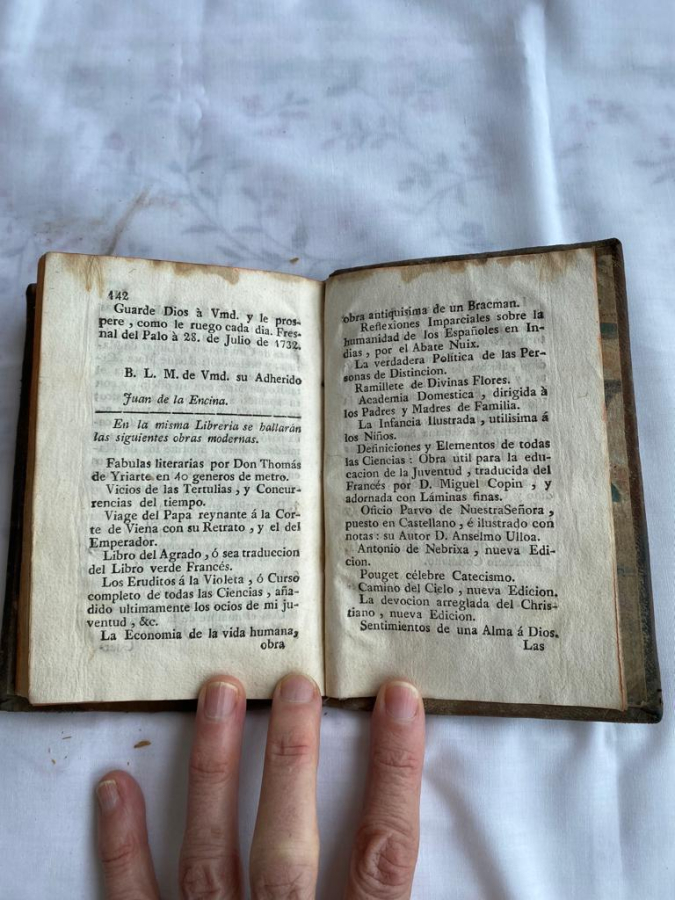 142
Guarde Dios à Vmd. y le pros-
pere , como le ruego cada dia. Fres-
nal del Palo à 28. de Julio de 1732.
B. L. M. de Vmd. su Adherido
Juan de la Encina.
En la misma Libreria se hallarán
las siguientes obras modernas.
Fabulas literarias por Don Thomás
de Yriarte en 40 generos de metro.
Vicios de las Tertulias , y Concur-
rencias del tiempo.
Viage del Papa reynante á la Cor-
te de Viena con su Retrato , y el del
Emperador.
Libro del Agrado , ó sea traduccion
del Libro verde Francés.
Los Eruditos á la Violeta , ó Curso
completo de todas las Ciencias , aña-
dido ultimamente los ocios de mi ju-
ventud , &c.
La Economia de la vida humana,
obra
obra antiquisima de un Bracman.
Reflexiones Imparciales sobre la
humanidad de los Españoles en In-
dias , por el Abate Nuix.
La verdadera Politica de las Per-
sonas de Distincion.
Ramillete de Divinas Flores.
Academia Domestica , dirigida à
los Padres y Madres de Familia.
La Infancia Ilustrada , utilisima á
los Niños.
Definiciones y Elementos de todas
las Ciencias : Obra util para la edu-
cacion de la Juventud , traducida del
Francés por D. Miguel Copin , y
adornada con Láminas finas.
Oficio Parvo de NuestraSeñora ,
puesto en Castellano , é ilustrado con
notas : su Autor D. Anselmo Ulloa.
Antonio de Nebrixa , nueva Edi-
cion.
Pouget célebre Catecismo.
Camino del Cielo , nueva Edicion.
La devocion arreglada del Chris-
tiano , nueva Edicion.
Sentimientos de una Alma á Dios.
Las